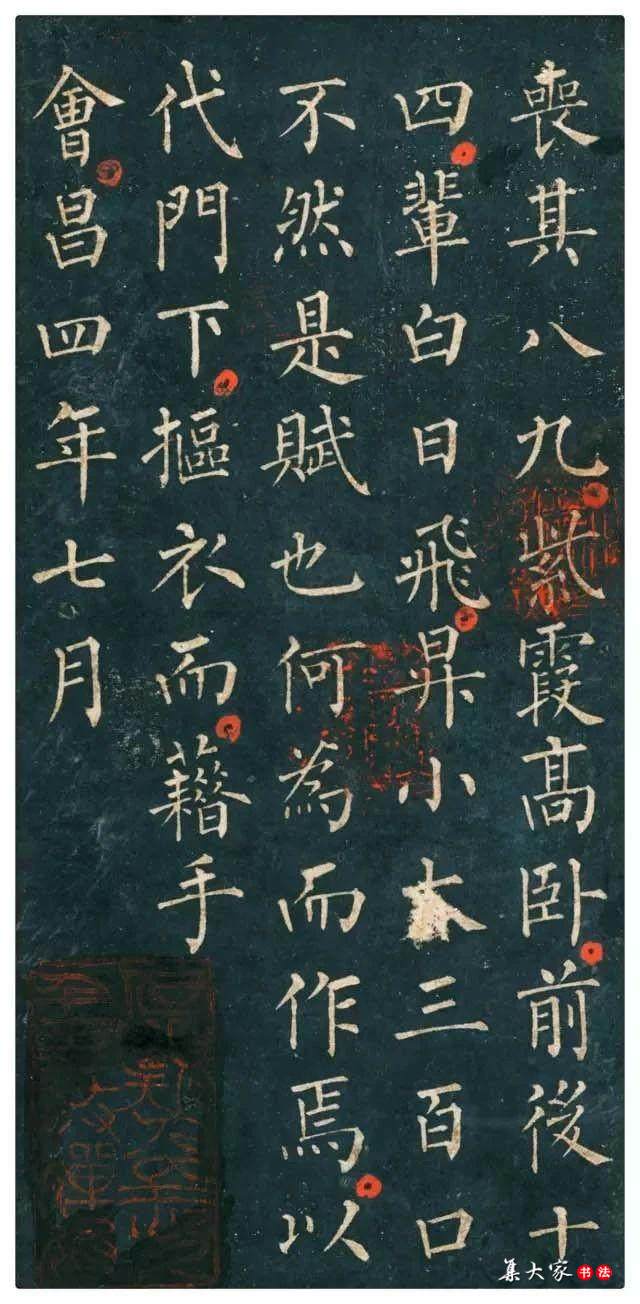 喪其八九紫霞高卧前後十
四輩白日飛昇小大三百口
不然是賦也何為而作焉以
代門下摳衣而藉手
會昌四年七月
集大家书法